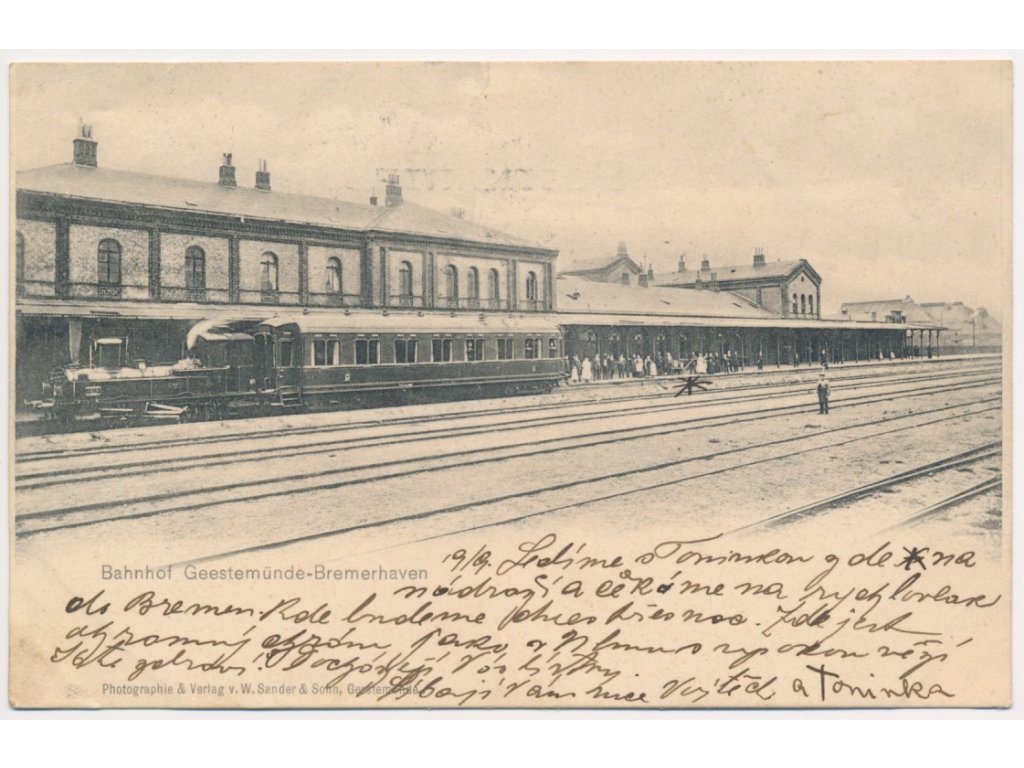 19/9. Sedíme s Toninkou zde na
Bahnhof Geestemünde-Bremerhaven
nádraží a čekáme na rychlovlak
do Bremen. Kde budeme přes noc. Zde jest
ohromný chrám, jako v Ulmu s vysokou věží
Jste zdrávi?
Photographie & Verlag v. W. Sander & Sohn, Geestemünde.
Líbají Vám ruce Vojtěch a Toninka